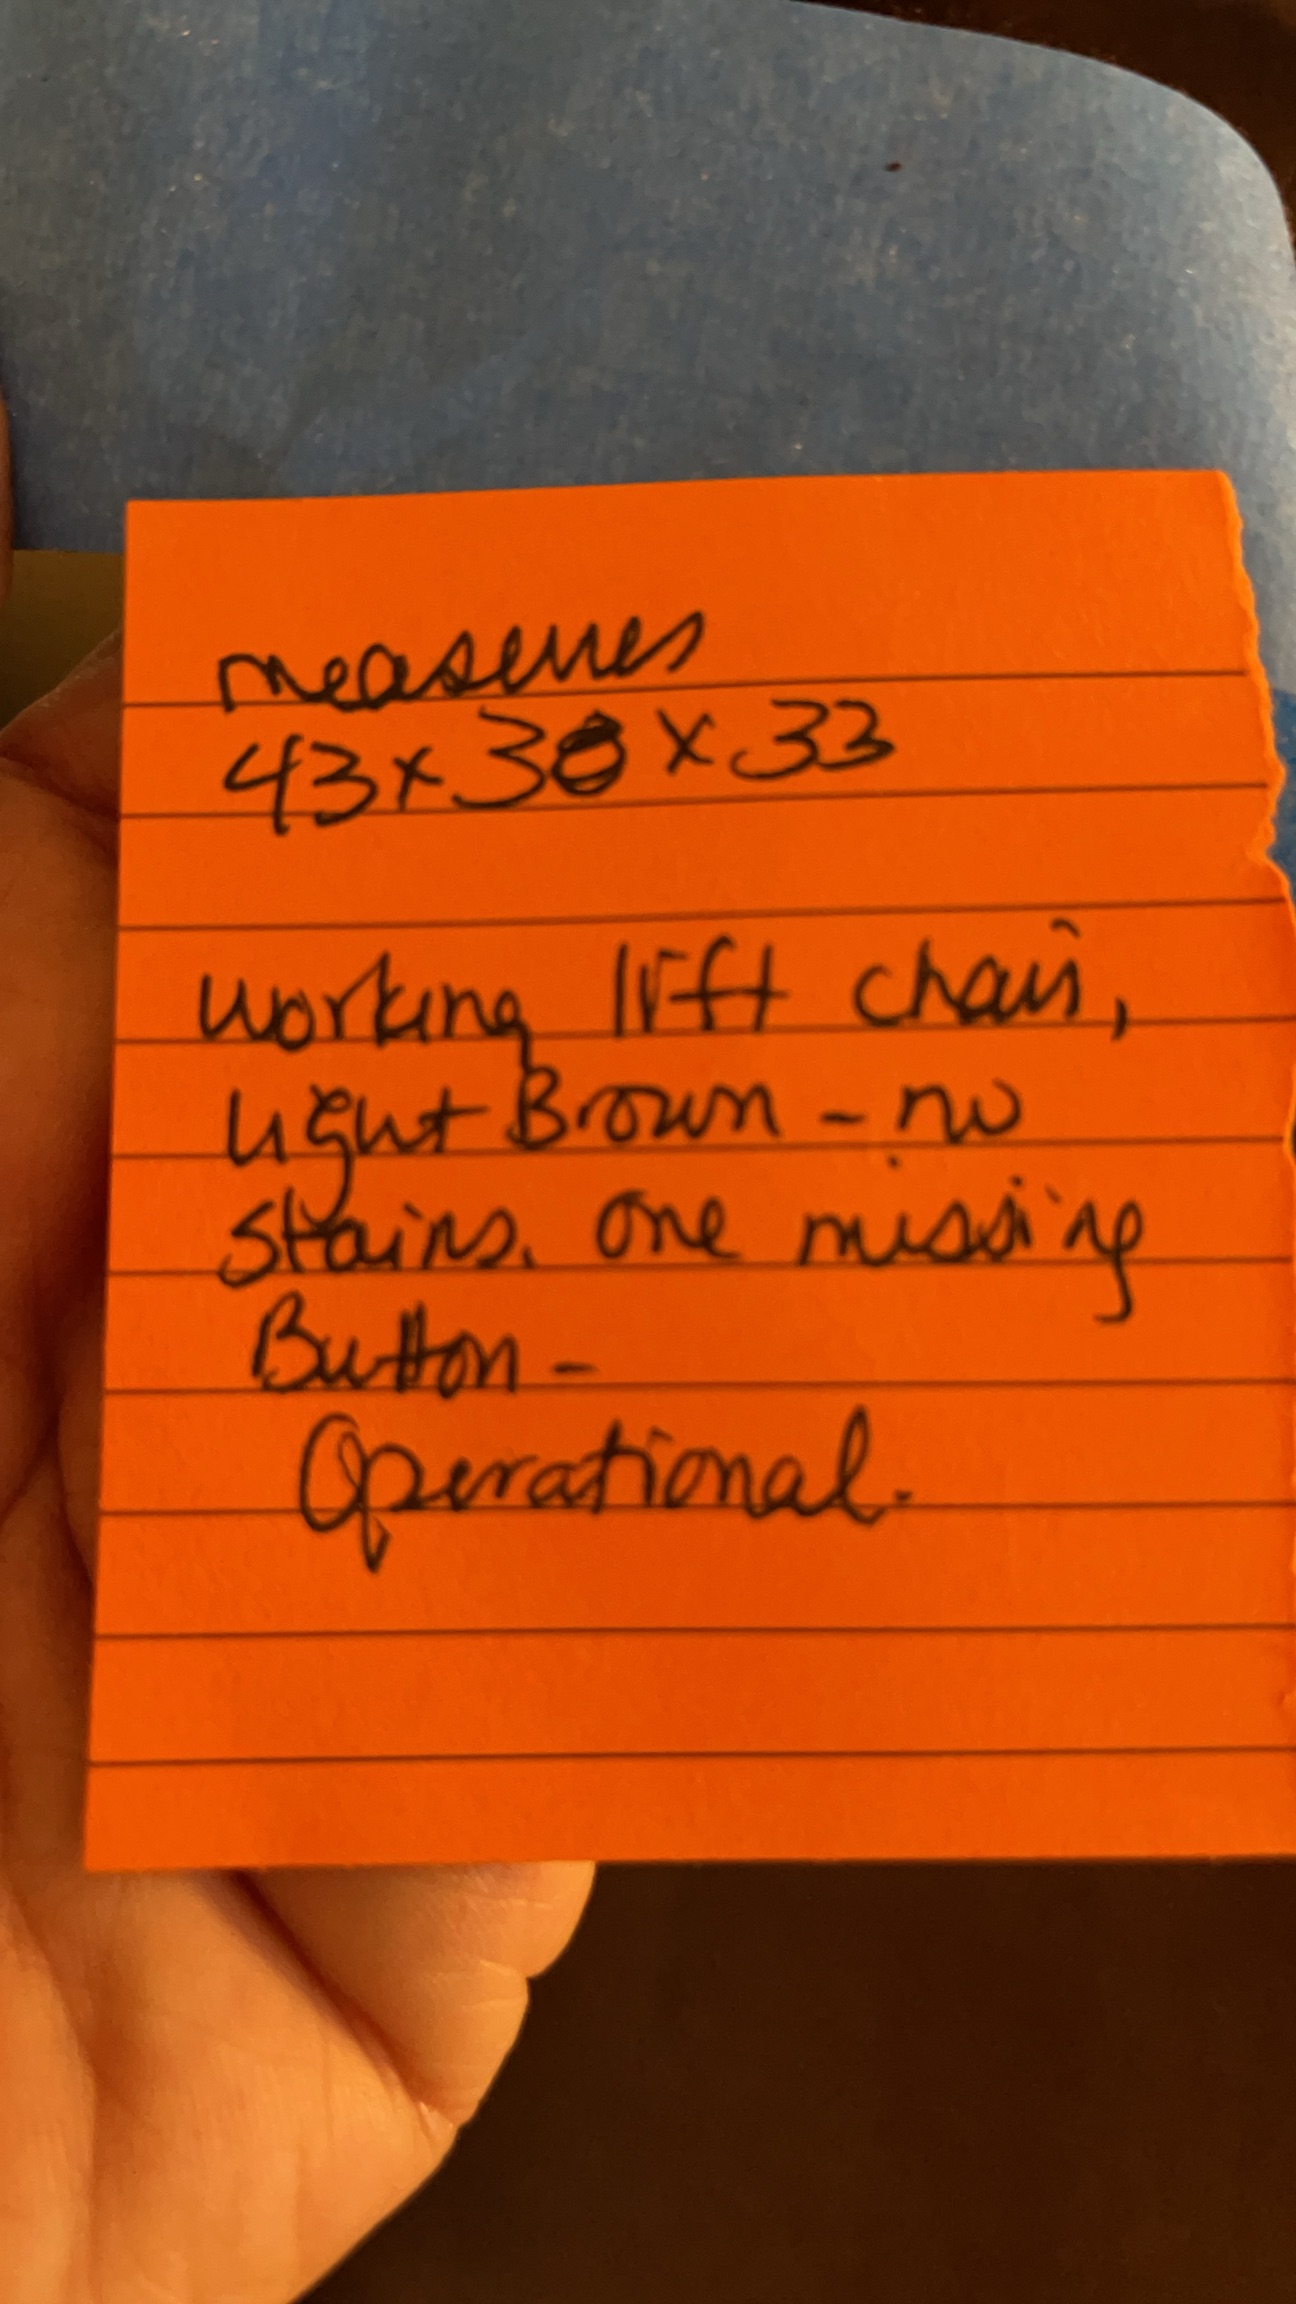 measures
43 x 30 x 33
working lift chair,
light Brown - no
stains. one missing
Button -
Operational.